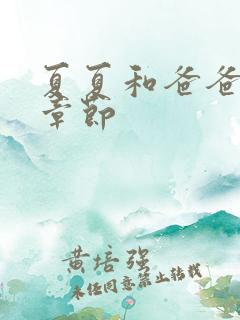 夏夏和爸爸
章节
黄培强
未经同意禁止转载